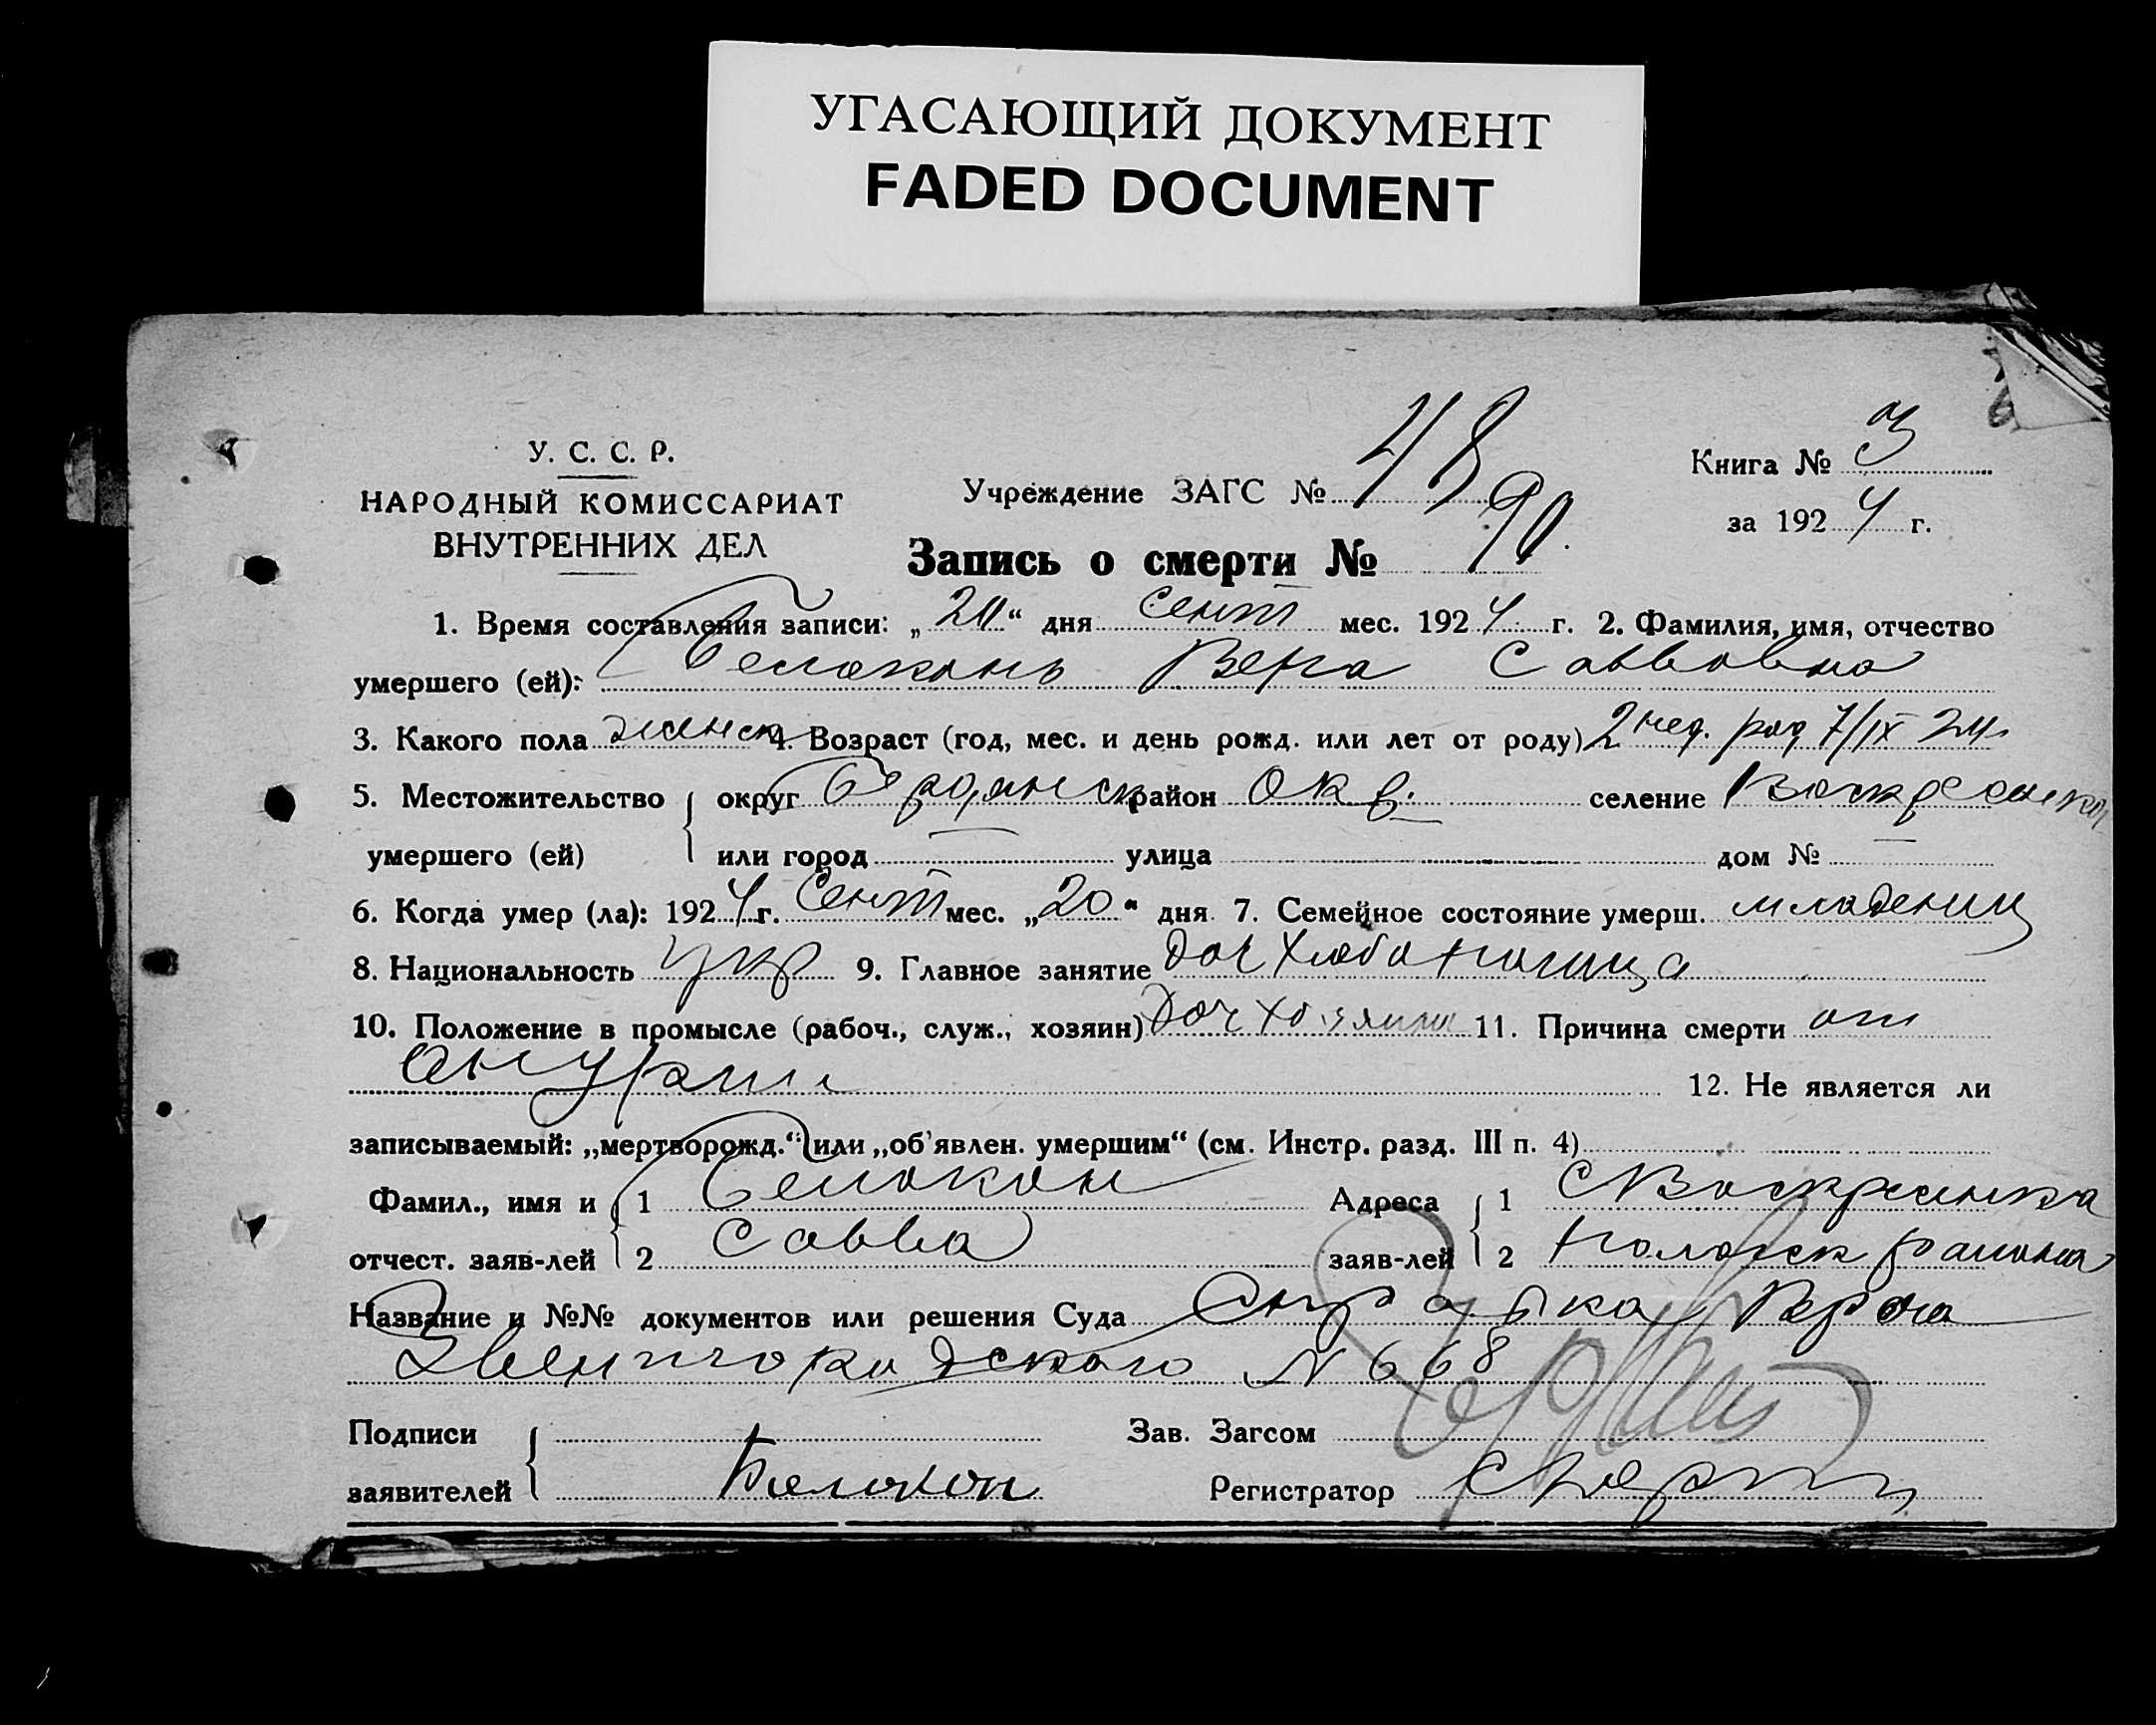 УГАСАЮЩИЙ ДОКУМЕНТ
FADED DOCUMENT
У. С. С. Р.
НАРОДНЫЙ КОМИССАРИАТ
ВНУТРЕННИХ ДЕЛ
Учреждение ЗАГС № 48
Книга № 3
за 1924 г.
Запись о смерти № 90.
1. Время составления записи: „24“ дня сент мес. 1924 г. 2. Фамилия, имя, отчество
умершего (ей): Белоконь Вера Саввовна
3. Какого пола женск 4. Возраст (год, мес. и день рожд. или лет от роду) 2 нед. род 7/IX 24
5. Местожительство округ Бердянск район Окр. селение Воскресенка
умершего (ей) или город — улица дом № —
6. Когда умер (ла): 1924 г. Сент мес. „20“ дня 7. Семейное состояние умерш. младениц
8. Национальность укр 9. Главное занятие доч хлебопашца
10. Положение в промысле (рабоч., служ., хозяин) доч хозяина 11. Причина смерти от
12. Не является ли
записываемый: „мертворожд.“ или „об'явлен. умершим“ (см. Инстр. разд. III п. 4)
Фамил., имя и 1 Белокон Адреса 1 С Воскресенка
отчест. заяв-лей 2 Савва заяв-лей 2 Пологск района
Название и №№ документов или решения Суда Справка Врача
N 668
Подписи Зав. Загсом
заявителей Белокон Регистратор